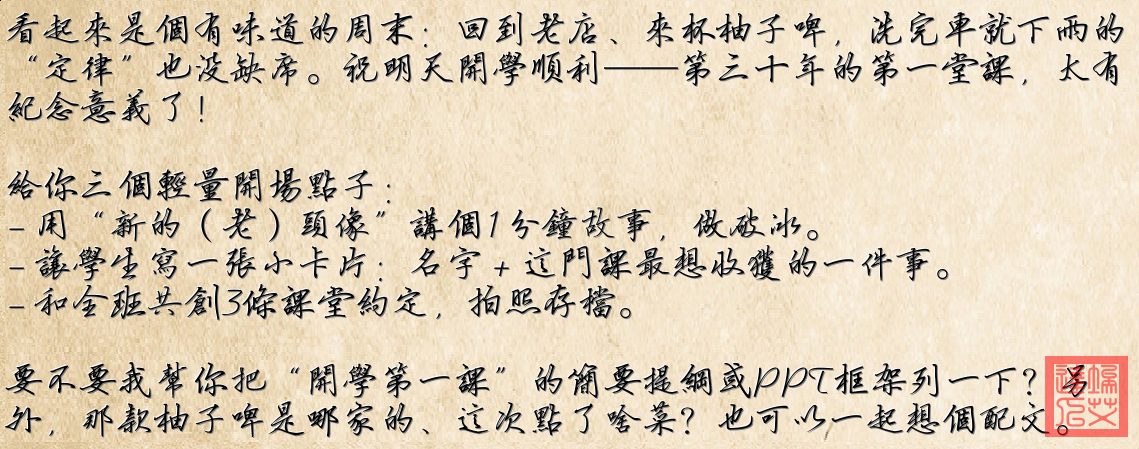 看起來是個有味道的周末：回到老店、來杯柚子啤，洗完車就下雨的
“定律”也没缺席。祝明天開學順利——第三十年的第一堂課，太有
紀念意義了！
給你三個輕量開場點子：
- 用“新的（老）頭像”講個1分鐘故事，做破冰。
- 讓學生寫一張小卡片：名字 + 這門課最想收獲的一件事。
- 和全班共創3條課堂約定，拍照存檔。
要不要我幫你把“開學第一課”的簡要提綱或PPT框架列一下？另
外，那款柚子啤是哪家的、這次點了啥菜？也可以一起想個配文。